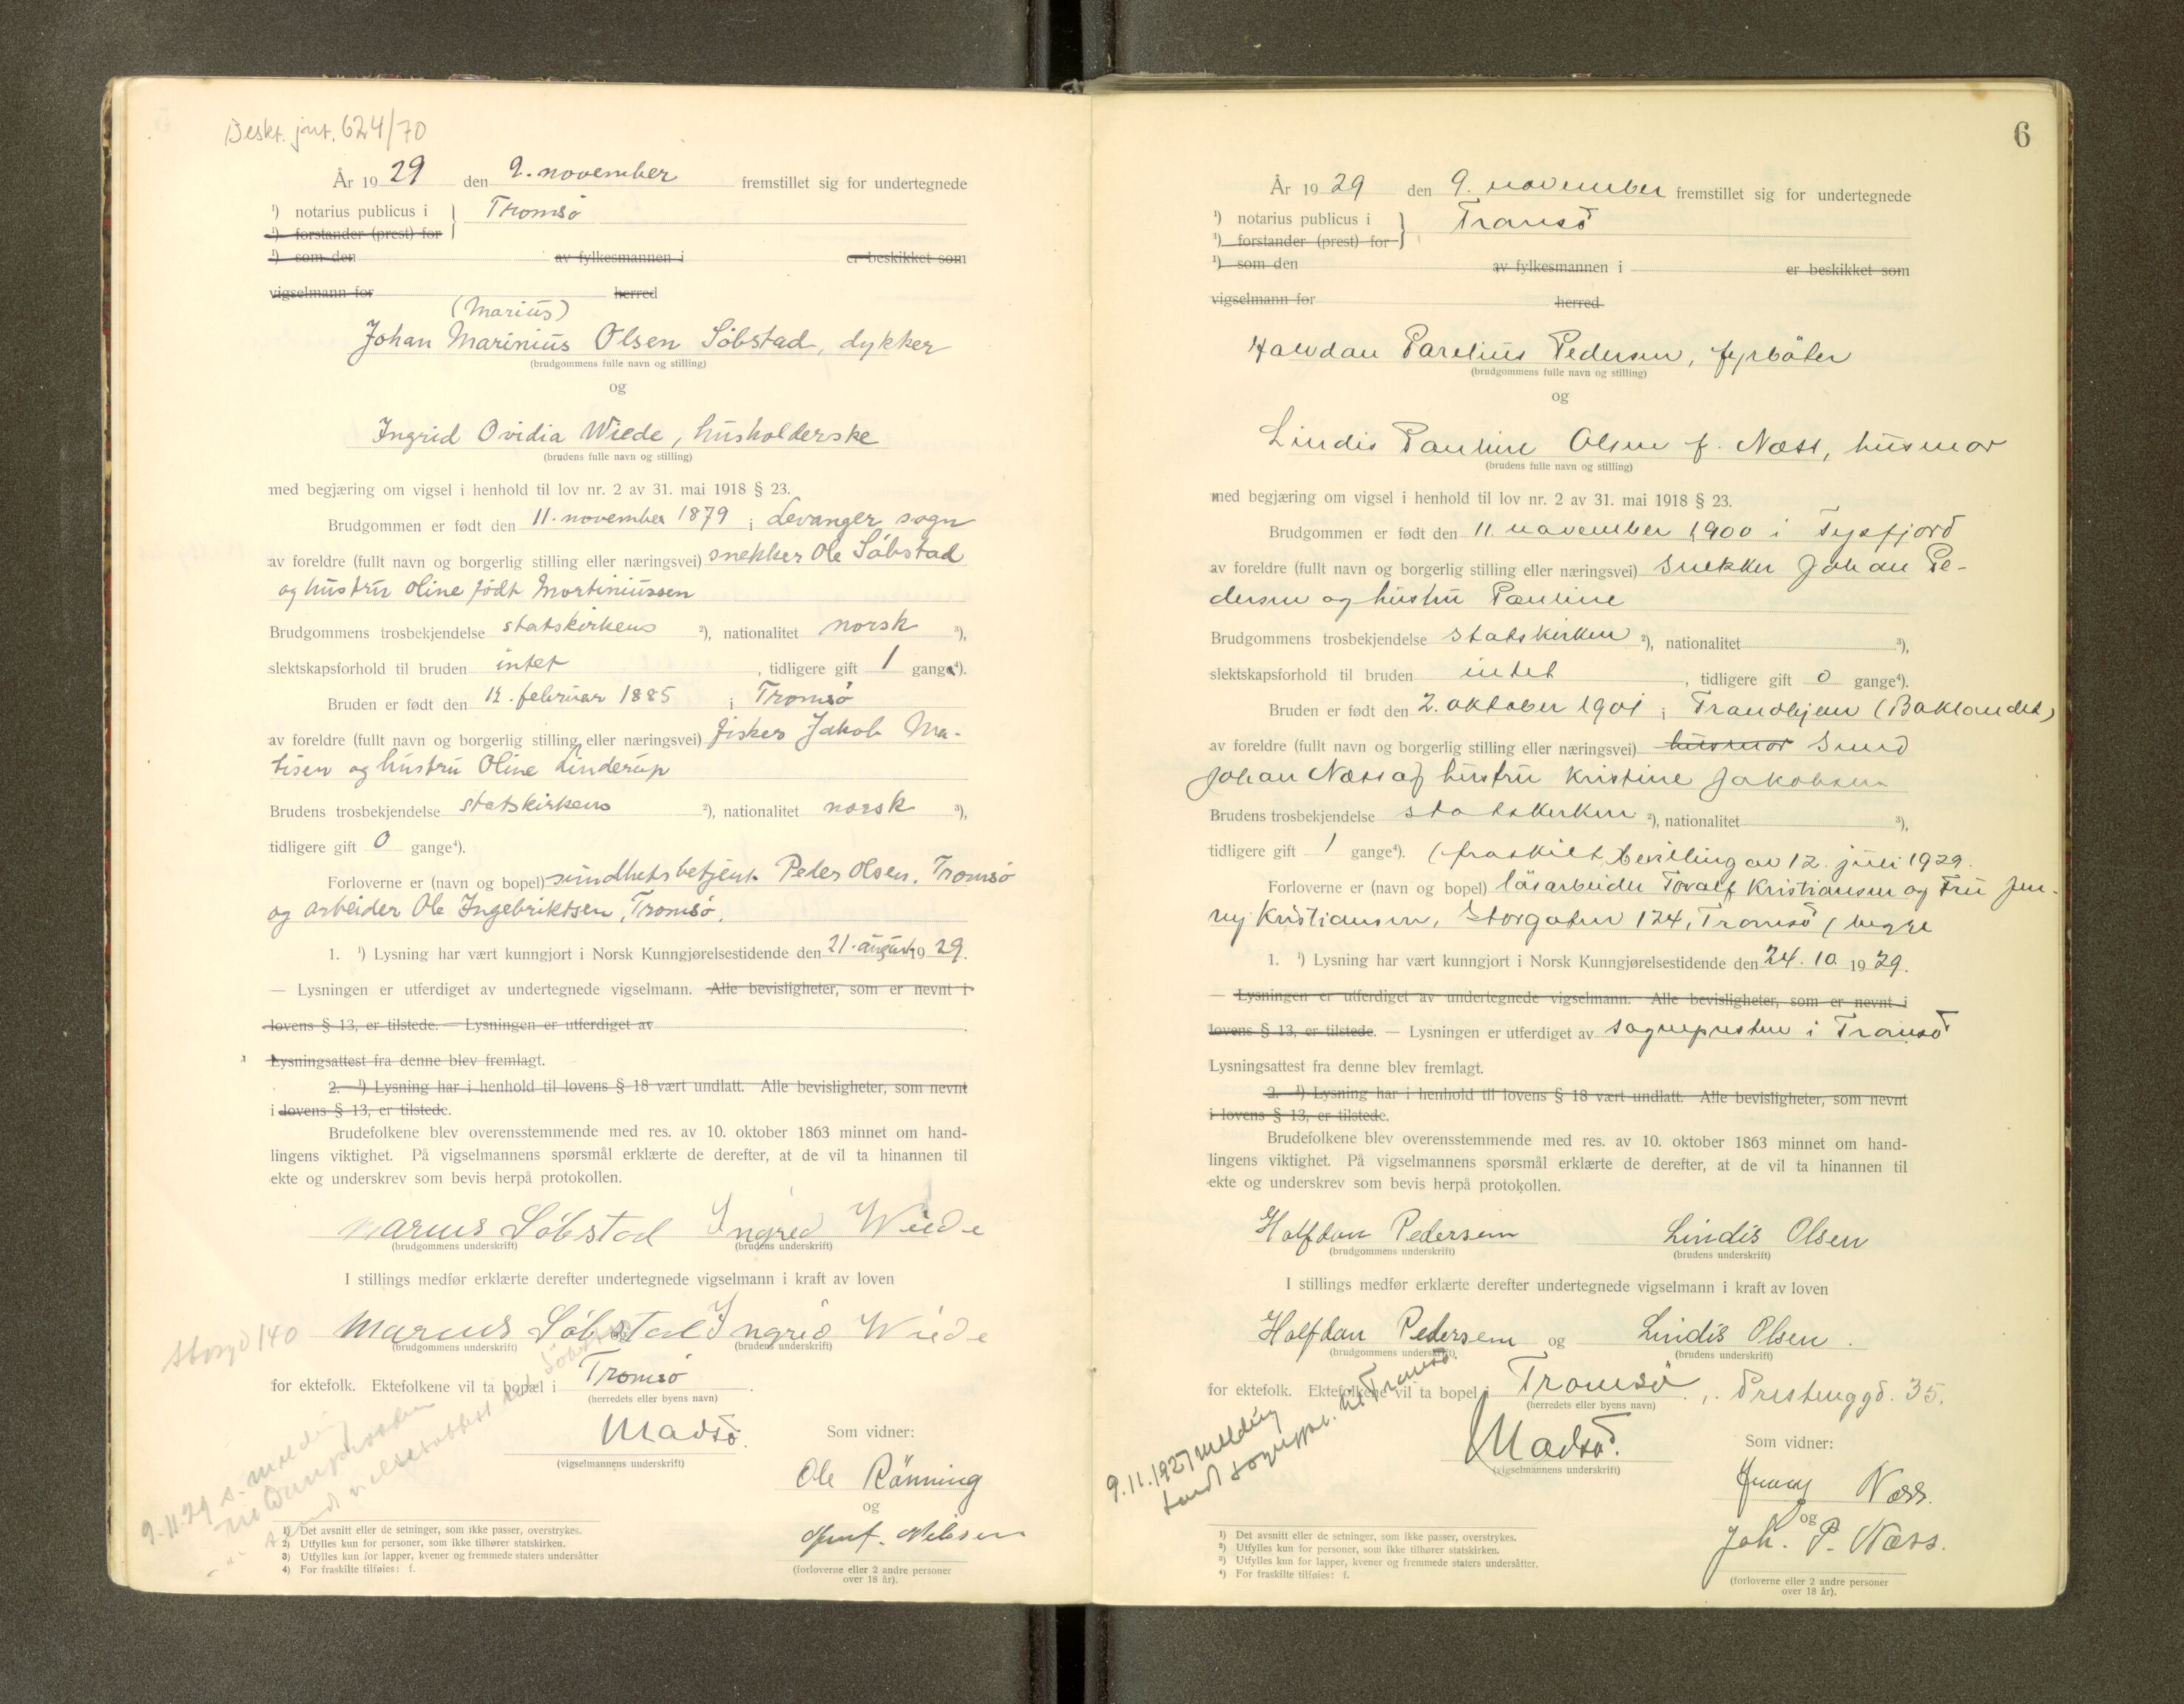 Beskt. jnr. 624/70
År 1929 den 9. november fremstillet sig for undertegnede
¹) notarius publicus i } Tromsö
¹) forstander (prest) for
¹) som den av fylkesmannen i er beskikket som
vigselmann for herred
(Marius)
Johan Marinius Olsen Söbstad, dykker
(brudgommens fulle navn og stilling)
og
Ingrid Ovidia Wiede, husholderske
(brudens fulle navn og stilling)
med begjæring om vigsel i henhold til lov nr. 2 av 31. mai 1918 § 23.
Brudgommen er født den 11. november 1879 i Levanger sogn
av foreldre (fullt navn og borgerlig stilling eller næringsvei) snekker Ole Söbstad
og hustru Oline födt Mortiniussen
Brudgommens trosbekjendelse statskirkens ²), nationalitet norsk ³),
slektskapsforhold til bruden intet, tidligere gift 1 gange⁴).
Bruden er født den 12. februar 1885 i Tromsö
av foreldre (fullt navn og borgerlig stilling eller næringsvei) fisker Jakob Ma-
tisen og hustru Oline Linderup
Brudens trosbekjendelse statskirkens ²), nationalitet norsk ³),
tidligere gift 0 gange⁴).
Forloverne er (navn og bopel) sundhetsbetjent Peder Olsen, Tromsö
og arbeider Ole Ingebriktsen, Tromsö.
1. ¹) Lysning har vært kunngjort i Norsk Kunngjørelsestidende den 21. august 1929.
— Lysningen er utferdiget av undertegnede vigselmann. Alle bevisligheter, som er nevnt i
lovens § 13, er tilstede. — Lysningen er utferdiget av .
Lysningsattest fra denne blev fremlagt.
2. ¹) Lysning har i henhold til lovens § 18 vært undlatt. Alle bevisligheter, som nevnt
i lovens § 13, er tilstede.
Brudefolkene blev overensstemmende med res. av 10. oktober 1863 minnet om hand-
lingens viktighet. På vigselmannens spørsmål erklærte de derefter, at de vil ta hinannen til
ekte og underskrev som bevis herpå protokollen.
Marius Söbstad Ingrid Wiede
(brudgommens underskrift) (brudens underskrift)
I stillings medfør erklærte derefter undertegnede vigselmann i kraft av loven
Storgd 140 Marius Söbstad Ingrid Wiede
(brudgommens underskrift) (brudens underskrift)
for ektefolk. Ektefolkene vil ta bopæl i Tromsö .
(herredets eller byens navn)
Madsö.
(vigselmannens underskrift)
Som vidner:
Ole Rönning
og
Nilsen
(forloverne eller 2 andre personer
over 18 år).
9.11.29 s. melding
1) Det avsnitt eller de setninger, som ikke passer, overstrykes.
2) Utfylles kun for personer, som ikke tilhører statskirken.
3) Utfylles kun for lapper, kvener og fremmede staters undersåtter
4) For fraskilte tilføies: f.
6
År 1929 den 9. november fremstillet sig for undertegnede
¹) notarius publicus i } Tromsö
¹) forstander (prest) for
¹) som den av fylkesmannen i er beskikket som
vigselmann for herred
Halvdan Parelius Pedersen, fyrböter
(brudgommens fulle navn og stilling)
og
Lindis Pauline Olsen f. Næss, husmor
(brudens fulle navn og stilling)
med begjæring om vigsel i henhold til lov nr. 2 av 31. mai 1918 § 23.
Brudgommen er født den 11. november 1900 i Tysfjord
av foreldre (fullt navn og borgerlig stilling eller næringsvei) snekker Johan Pe-
dersen og hustru Pauline
Brudgommens trosbekjendelse statskirken ²), nationalitet ³),
slektskapsforhold til bruden intet, tidligere gift 0 gange⁴).
Bruden er født den 2. oktober 1901 i Trondhjem (Baklandet)
av foreldre (fullt navn og borgerlig stilling eller næringsvei) husmor smed
Johan Næss og hustru Kristine Jakobsen
Brudens trosbekjendelse statskirken ²), nationalitet ³),
tidligere gift 1 gange⁴). (fraskilt, bevilling av 12. juli 1929.
Forloverne er (navn og bopel) løsarbeider Torvalf Kristiansen og Fru Jen-
ny Kristiansen, Storgaten 124, Tromsö (begge
1. ¹) Lysning har vært kunngjort i Norsk Kunngjørelsestidende den 24. 10. 1929.
— Lysningen er utferdiget av undertegnede vigselmann. Alle bevisligheter, som er nevnt i
lovens § 13, er tilstede. — Lysningen er utferdiget av sognepresten i Tromsö
Lysningsattest fra denne blev fremlagt.
2. ¹) Lysning har i henhold til lovens § 18 vært undlatt. Alle bevisligheter, som nevnt
i lovens § 13, er tilstede.
Brudefolkene blev overensstemmende med res. av 10. oktober 1863 minnet om hand-
lingens viktighet. På vigselmannens spørsmål erklærte de derefter, at de vil ta hinannen til
ekte og underskrev som bevis herpå protokollen.
Halfdan Pedersen Lindis Olsen
(brudgommens underskrift) (brudens underskrift)
I stillings medfør erklærte derefter undertegnede vigselmann i kraft av loven
Halfdan Pedersen og Lindis Olsen .
(brudgommens underskrift) (brudens underskrift)
for ektefolk. Ektefolkene vil ta bopel i Tromsö., Prestenggd. 35.
(herredets eller byens navn)
Madsö.
(vigselmannens underskrift)
9.11.1927 melding
sendt sogneppr. til Tromsö.
Som vidner:
Næss.
og
Joh. P. Næss.
(forloverne eller 2 andre personer
over 18 år).
¹) Det avsnitt eller de setninger, som ikke passer, overstrykes.
²) Utfylles kun for personer, som ikke tilhører statskirken.
³) Utfylles kun for lapper, kvener og fremmede staters undersåtter.
⁴) For fraskilte tilføies: f.